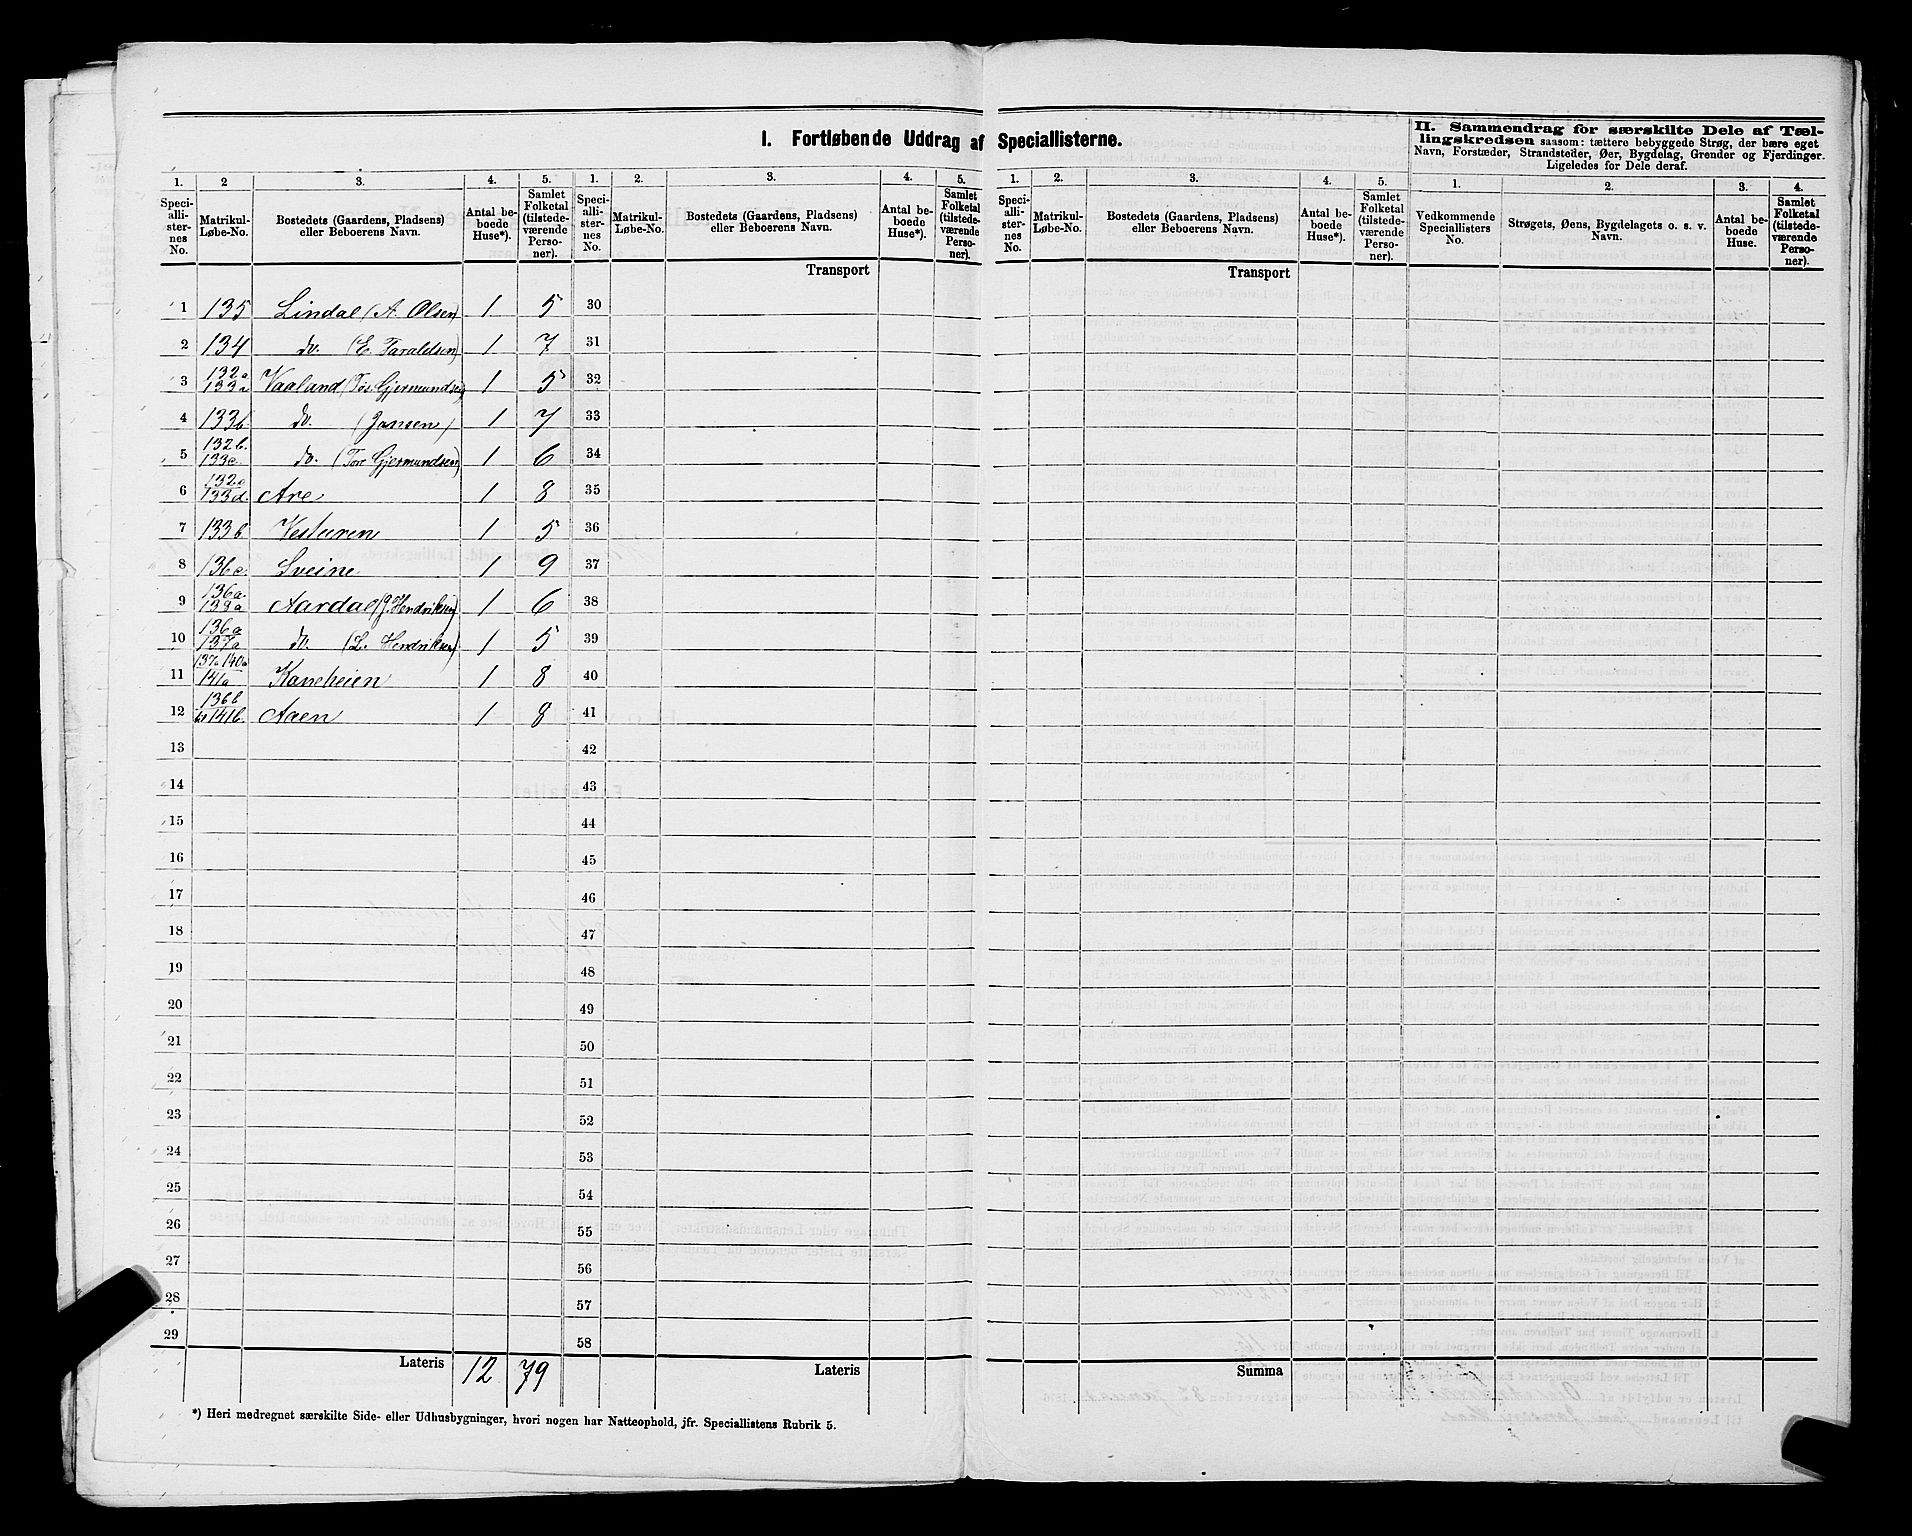 I. Fortløbende Uddrag af Speciallisterne.
II. Sammendrag for særskilte Dele af Tællingskredsen saasom: tættere bebyggede Strøg, der bære eget
Navn, Forstæder, Strandsteder, Øer, Bygdelag, Grender og Fjerdinger.
Ligeledes for Dele deraf.
1. 2 3. 4. 5. 1. 2. 3. 4. 5. 1. 2. 3. 4. 5. 1. 2. 3. 4.
Speciallisternes No. Matrikul-Løbe-No. Bostedets (Gaardens, Pladsens) eller Beboerens Navn. Antal beboede Huse*). Samlet Folketal (tilstedeværende Personer).
Speciallisternes No. Matrikul-Løbe-No. Bostedets (Gaardens, Pladsens) eller Beboerens Navn. Antal beboede Huse*). Samlet Folketal (tilstedeværende Personer).
Speciallisternes No. Matrikul-Løbe-No. Bostedets (Gaardens, Pladsens) eller Beboerens Navn. Antal beboede Huse*). Samlet Folketal (tilstedeværende Personer).
Vedkommende Speciallisters No. Strøgets, Øens, Bygdelagets o. s. v. Navn. Antal beboede Huse. Samlet Folketal (tilstedeværende Personer).
Transport Transport
1 135 Lindal (A. Olsen) 1 5 30
2 134 do. (E. Taraldsen) 1 7 31
3 132a 133a Vaaland (Tos. Gjermundsen) 1 5 32
4 133b. do. (Jansen) 1 7 33
5 132b. 133c. do. (Tore Gjermundsen) 1 6 34
6 132c 133d. Are 1 8 35
7 133b Vesteren 1 5 36
8 136c. Sveine 1 9 37
9 136a. 138a Aardal (J. Hendriksen) 1 6 38
10 136a 137a do. (L. Hendriksen) 1 5 39
11 137a 140a 141a Kaneheien 1 8 40
12 136b 141b. Aaen 1 8 41
13 42
14 43
15 44
16 45
17 46
18 47
19 48
20 49
21 50
22 51
23 52
24 53
25 54
26 55
27 56
28 57
29 58
Lateris 12 79 Lateris Summa
*) Heri medregnet særskilte Side- eller Udhusbygninger, hvori nogen har Natteophold, jfr. Speciallistens Rubrik 5.